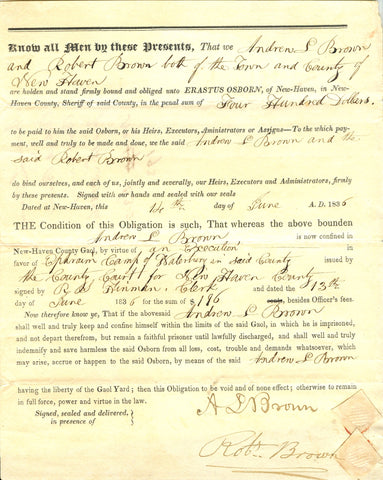 Know all Men by these Presents, That we Andrew L Brown
and Robert Brown both of the Town and County of
New Haven
are holden and stand firmly bound and obliged unto ERASTUS OSBORN, of New-Haven, in New-
Haven County, Sheriff of said County, in the penal sum of Four Hundred Dollars.
to be paid to him the said Osborn, or his Heirs, Executors, Administrators or Assigns—To the which pay-
ment, well and truly to be made and done, we the said Andrew L Brown and the
said Robert Brown
do bind ourselves, and each of us, jointly and severally, our Heirs, Executors and Administrators, firmly
by these presents. Signed with our hands and sealed with our seals
Dated at New-Haven, this 14th day of June A. D. 1836
THE Condition of this Obligation is such, That whereas the above bounden
Andrew L Brown is now confined in
New-Haven County Gaol, by virtue of an Execution in
favor of Ephraim Camp of Waterbury in said County issued by
the County Court for New Haven County
signed by R R Hinman Clerk and dated the 13th
day of June 1836 for the sum of $196 besides Officer's fees.
Now therefore know ye, That if the abovesaid Andrew L Brown
shall well and truly keep and confine himself within the limits of the said Gaol, in which he is imprisoned,
and not depart therefrom, but remain a faithful prisoner until lawfully discharged, and shall well and truly
indemnify and save harmless the said Osborn from all loss, cost, trouble and demands whatsoever, which
may arise, accrue or happen to the said Osborn, by means of the said Andrew L Brown
having the liberty of the Gaol Yard; then this Obligation to be void and of none effect; otherwise to remain
in full force, power and virtue in the law.
Signed, sealed and delivered,
in presence of
A L Brown
Robt. Brown